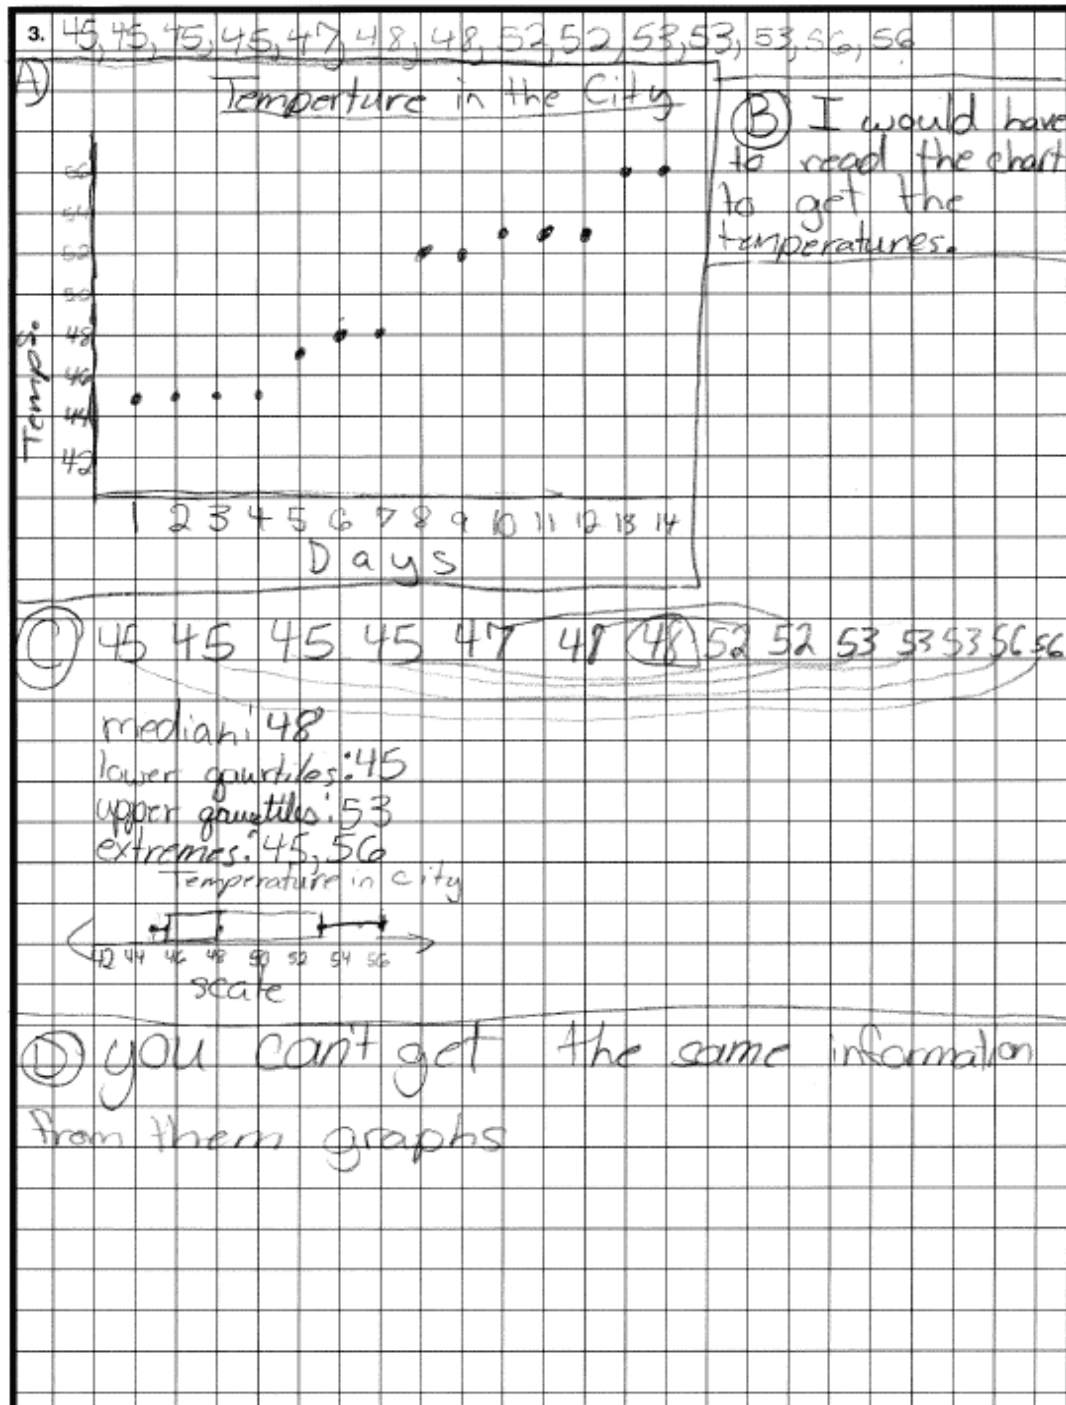 3. 45, 45, 45, 45, 47, 48, 48, 52, 52, 53, 53, 53, 56, 56
A)
Temperture in the City
56
54
52
50
48
46
44
42
Temps.
1 2 3 4 5 6 7 8 9 10 11 12 13 14
Days
B I would have
to read the chart
to get the
temperatures.
C 45 45 45 45 47 48 48 52 52 53 53 53 56 56
median: 48
lower qaurtiles: 45
upper qaurtiles: 53
extremes: 45, 56
Temperature in city
42 44 46 48 50 52 54 56
scale
D you can't get the same information
from them graphs